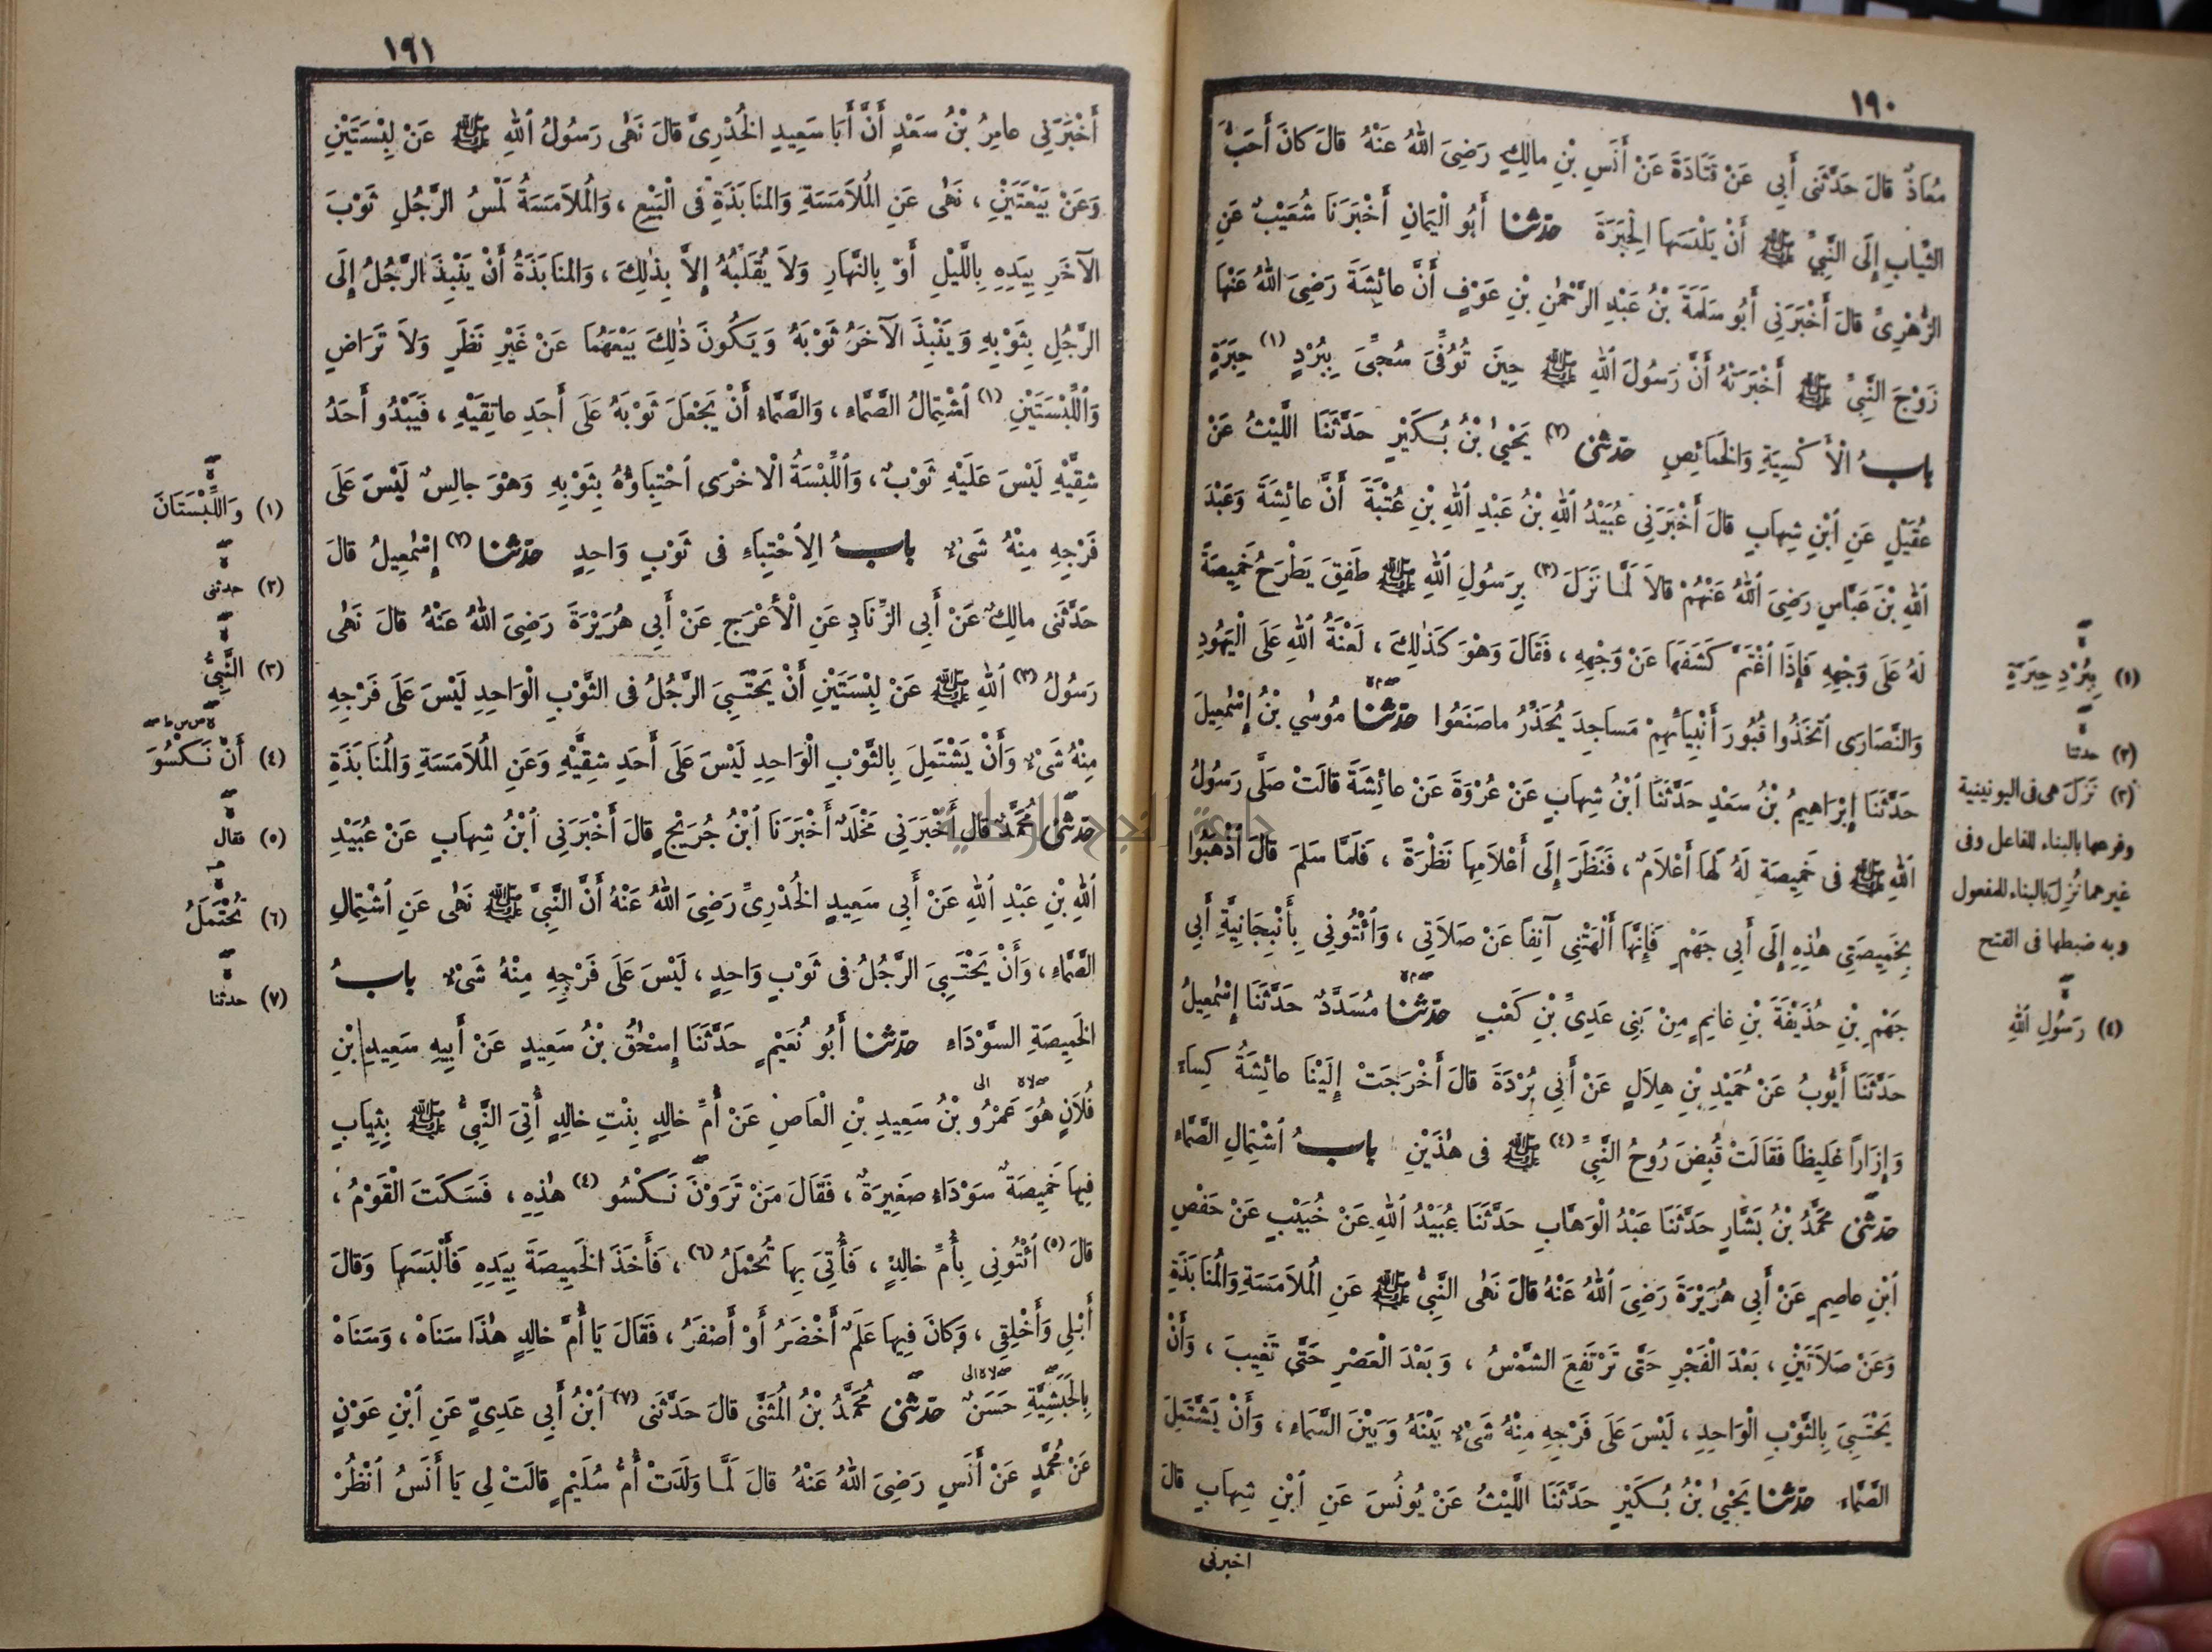 ١٩٠
مُعَاذٌ قالَ حَدَّثَنِى أَبِي عَنْ قَتَادَةَ عَنْ أَنَسِ بْنِ مالِكٍ رَضِىَ اللهُ عَنْهُ قالَ كانَ أَحَبُّ
الثِّيَابِ إِلَى النَّبِيِّ ﷺ أَنْ يَلْبَسَهَا الْحِبَرَةَ حدّثنا أَبُو الْيَمَانِ أَخْبَرَنَا شُعَيْبٌ عَنِ
الزُّهْرِىِّ قالَ أَخْبَرَنِي أَبُو سَلَمَةَ بْنُ عَبْدِ الرَّحْمٰنِ بْنِ عَوْفٍ أَنَّ عائِشَةَ رَضِىَ اللهُ عَنْهَا
زَوْجَ النَّبِيِّ ﷺ أَخْبَرَتْهُ أَنَّ رَسُولَ اللهِ ﷺ حِينَ تُوُفِّىَ سُجِّىَ بِبُرْدٍ (١) حِبَرَةٍ
بابُ الْأَكْسِيَةِ وَالخَمَائِصِ حدّثنى (٢) يَحْيىٰ بْنُ بُكَيْرٍ حَدَّثَنَا اللَّيْثُ عَنْ
عُقَيْلٍ عَنِ ٱبْنِ شِهَابٍ قالَ أَخْبَرَنِي عُبَيْدُ اللهِ بْنُ عَبْدِ اللهِ بْنِ عُتْبَةَ أَنَّ عائِشَةَ وَعَبْدَ
اللهِ بْنَ عَبَّاسٍ رَضِىَ اللهُ عَنْهُمْ قالاَ لَمَّا نَزَلَ (٣) بِرَسُولِ اللهِ ﷺ طَفِقَ يَطْرَحُ خَمِيصَةً
لَهُ عَلَى وَجْهِهِ فَإِذَا ٱغْتَمَّ كَشَفَهَا عَنْ وَجْهِهِ ، فَقَالَ وَهْوَ كَذٰلِكَ ، لَعْنَةُ اللهِ عَلَى الْيَهُودِ
وَالنَّصَارَى ٱتَّخَذُوا قُبُورَ أَنْبِيَائِهِمْ مَساجِدَ يُحَذِّرُ ماصَنَعُوا حدّثنا مُوسٰى بْنُ إِسْمٰعِيلَ
حَدَّثَنَا إِبْرَاهِيمُ بْنُ سَعْدٍ حَدَّثَنَا ٱبْنُ شِهَابٍ عَنْ عُرْوَةَ عَنْ عائِشَةَ قالَتْ صَلَّى رَسُولُ
اللهِ ﷺ فى خَمِيصَةٍ لَهُ لَهَا أَعْلاَمٌ ، فَنَظَرَ إِلَى أَعْلاَمِهَا نَظْرَةً ، فَلَمَّا سَلَّمَ قالَ ٱذْهَبُوا
بِخَمِيصَتِى هٰذِهِ إِلَى أَبِي جَهْمٍ فَإِنَّهَا أَلْهَتْنِى آنِفًا عَنْ صَلاَتِى ، وَٱئْتُونِي بِأَنْبِجَانِيَّةِ أَبِي
جَهْمِ بْنِ حُذَيْفَةَ بْنِ غانِمٍ مِنْ بَنِى عَدِىِّ بْنِ كَعْبٍ حدّثنا مُسَدَّدٌ حَدَّثَنَا إِسْمٰعِيلُ
حَدَّثَنَا أَيُّوبُ عَنْ حُمَيْدِ بْنِ هِلاَلٍ عَنْ أَبِي بُرْدَةَ قالَ أَخْرَجَتْ إِلَيْنَا عائِشَةُ كِسَاءً
وَإِزَاراً غَلِيظًا فَقَالَتْ قُبِضَ رُوحُ النَّبِيِّ (٤) ﷺ فى هٰذَيْنِ بابُ ٱشْتِمَالِ الصَّمَّاءِ
حدّثنى مُحَمَّدُ بْنُ بَشَّارٍ حَدَّثَنَا عَبْدُ الْوَهَّابِ حَدَّثَنَا عُبَيْدُ اللهِ عَنْ خُبَيْبٍ عَنْ حَفْصِ
ٱبْنِ عاصِمٍ عَنْ أَبِي هُرَيْرَةَ رَضِىَ اللهُ عَنْهُ قالَ نَهَى النَّبِيُّ ﷺ عَنِ الْمُلاَمَسَةِ وَالْمُنَابَذَةِ
وَعَنْ صَلاَتَيْنِ ، بَعْدَ الْفَجْرِ حَتَّى تَرْتَفِعَ الشَّمْسُ ، وَبَعْدَ الْعَصْرِ حَتَّى تَغِيبَ ، وَأَنْ
يَحْتَبِىَ بِالثَّوْبِ الْوَاحِدِ ، لَيْسَ عَلَى فَرْجِهِ مِنْهُ شَىْءٌ بَيْنَهُ وَبَيْنَ السَّمَاءِ ، وَأَنْ يَشْتَمِلَ
الصَّمَّاءَ حدّثنا يَحْيىٰ بْنُ بُكَيْرٍ حَدَّثَنَا اللَّيْثُ عَنْ يُونُسَ عَنِ ٱبْنِ شِهَابٍ قالَ
اخبرنى
(١) بِبُرْدِ حِبَرَةٍ
(٢) حدثنا
(٣) نَزَلَ هى فى اليونينية
وفرعها بالبناء للفاعل وفى
غيرهما نُزِلَ بالبناء للمفعول
وبه ضبطها فى الفتح
(٤) رَسُولِ اللهِ
١٩١
أَخْبَرَنِي عامِرُ بْنُ سَعْدٍ أَنَّ أَبَا سَعِيدٍ الخُدْرِىَّ قالَ نَهَى رَسُولُ اللهِ ﷺ عَنْ لِبْسَتَيْنِ
وَعَنْ بَيْعَتَيْنِ ، نَهَى عَنِ الْمُلاَمَسَةِ وَالمنَابَذَةِ فى الْبَيْعِ ، وَالْمُلاَمَسَةُ لَمْسُ الرَّجُلِ ثَوْبَ
الآخَرِ بِيَدِهِ بِاللَّيْلِ أَوْ بِالنَّهَارِ وَلاَ يُقَلِّبُهُ إِلاَّ بِذٰلِكَ ، وَالمنَابَذَةُ أَنْ يَنْبِذَ الرَّجُلُ إِلَى
الرَّجُلِ بِثَوْبِهِ وَيَنْبِذَ الآخَرُ ثَوْبَهُ وَيَكُونَ ذٰلِكَ بَيْعَهُمَا عَنْ غَيْرِ نَظَرٍ وَلاَ تَرَاضٍ
وَٱللِّبْسَتَيْنِ (١) ٱشْتِمَالُ الصَّمَّاءِ ، وَالصَّمَّاءُ أَنْ يَجْعَلَ ثَوْبَهُ عَلَى أَحَدِ عاتِقَيْهِ ، فَيَبْدُو أَحَدُ
شِقَّيْهِ لَيْسَ عَلَيْهِ ثَوْبٌ ، وَٱللِّبْسَةُ الْاخْرَى ٱحْتِبَاؤُهُ بِثَوْبِهِ وَهْوَ جالِسٌ لَيْسَ عَلَى
فَرْجِهِ مِنْهُ شَىْءٌ بابُ الِٱحْتِبَاءِ فى ثَوْبٍ وَاحِدٍ حدّثنا (٢) إِسْمٰعِيلُ قالَ
حَدَّثَنِى مالِكٌ عَنْ أَبِي الزِّنَادِ عَنِ الْأَعْرَجِ عَنْ أَبِي هُرَيْرَةَ رَضِىَ اللهُ عَنْهُ قالَ نَهَى
رَسُولُ (٣) اللهِ ﷺ عَنْ لِبْسَتَيْنِ أَنْ يَحْتَبِىَ الرَّجُلُ فى الثَّوْبِ الْوَاحِدِ لَيْسَ عَلَى فَرْجِهِ
مِنْهُ شَىْءٌ وَأَنْ يَشْتَمِلَ بِالثَّوْبِ الْوَاحِدِ لَيْسَ عَلَى أَحَدِ شِقَّيْهِ وَعَنِ الْمُلاَمَسَةِ وَالْمُنَابَذَةِ
حدّثنى مُحَمَّدٌ قالَ أَخْبَرَنِي مَخْلَدٌ أَخْبَرَنَا ٱبْنُ جُرَيْجٍ قالَ أَخْبَرَنِي ٱبْنُ شِهَابٍ عَنْ عُبَيْدِ
اللهِ بْنِ عَبْدِ اللهِ عَنْ أَبِي سَعِيدٍ الخُدْرِىِّ رَضِىَ اللهُ عَنْهُ أَنَّ النَّبِيَّ ﷺ نَهَى عَنِ ٱشْتِمَالِ
الصَّمَّاءِ ، وَأَنْ يَحْتَبِىَ الرَّجُلُ فى ثَوْبٍ وَاحِدٍ ، لَيْسَ عَلَى فَرْجِهِ مِنْهُ شَىْءٌ بابُ
الخَمِيصَةِ السَّوْدَاءِ حدّثنا أَبُو نُعَيْمٍ حَدَّثَنَا إِسْحٰقُ بْنُ سَعِيدٍ عَنْ أَبِيهِ سَعِيدِ بْنِ
فُلَانٍ هُوَ عَمْرُو بْنُ سَعِيدِ بْنِ الْعَاصِ عَنْ أُمِّ خالِدٍ بِنْتِ خالِدٍ أُتِىَ النَّبِيُّ ﷺ بِثِيَابٍ
فِيهَا خَمِيصَةٌ سَوْدَاءُ صَغِيرَةٌ ، فَقَالَ مَنْ تَرَوْنَ نَكْسُو (٤) هٰذِهِ ، فَسَكَتَ الْقَوْمُ ،
قالَ (٥) ٱئْتُونِي بِأُمِّ خالِدٍ ، فَأُتِىَ بِهَا تُحْمَلُ (٦) ، فَأَخَذَ الخَمِيصَةَ بِيَدِهِ فَأَلْبَسَهَا وَقالَ
أَبْلِى وَأَخْلِقِى ، وَكانَ فِيهَا عَلَمٌ أَخْضَرُ أَوْ أَصْفَرُ ، فَقَالَ يَا أُمَّ خالِدٍ هٰذَا سَنَاهْ ، وَسَنَاهْ
بِالْحَبَشِيَّةِ حَسَنٌ حدّثنى مُحَمَّدُ بْنُ الْمُثَنَّى قالَ حَدَّثَنِى (٧) ٱبْنُ أَبِي عَدِيٍّ عَنِ ٱبْنِ عَوْنٍ
عَنْ مُحَمَّدٍ عَنْ أَنَسٍ رَضِىَ اللهُ عَنْهُ قالَ لَمَّا وَلَدَتْ أُمُّ سُلَيْمٍ قالَتْ لِي يَا أَنَسُ ٱنْظُرْ
(١) وَاللِّبْسَتَانِ
(٢) حدثنى
(٣) النَّبِيُّ
(٤) أَنْ نَكْسُوَ
(٥) فقال
(٦) تُحْتَمَلُ
(٧) حدثنا